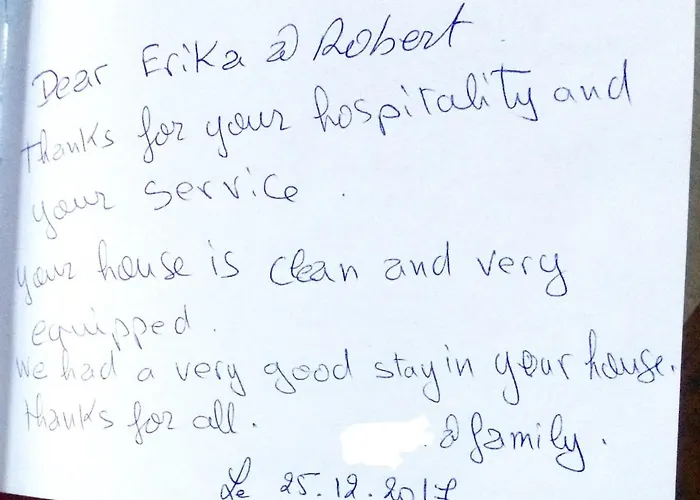 Dear Erika @ Robert.
thanks for your hospitality and
your service.
your house is clean and very
equipped.
we had a very good stay in your house.
thanks for all.
@ family.
Le 25.12.2017